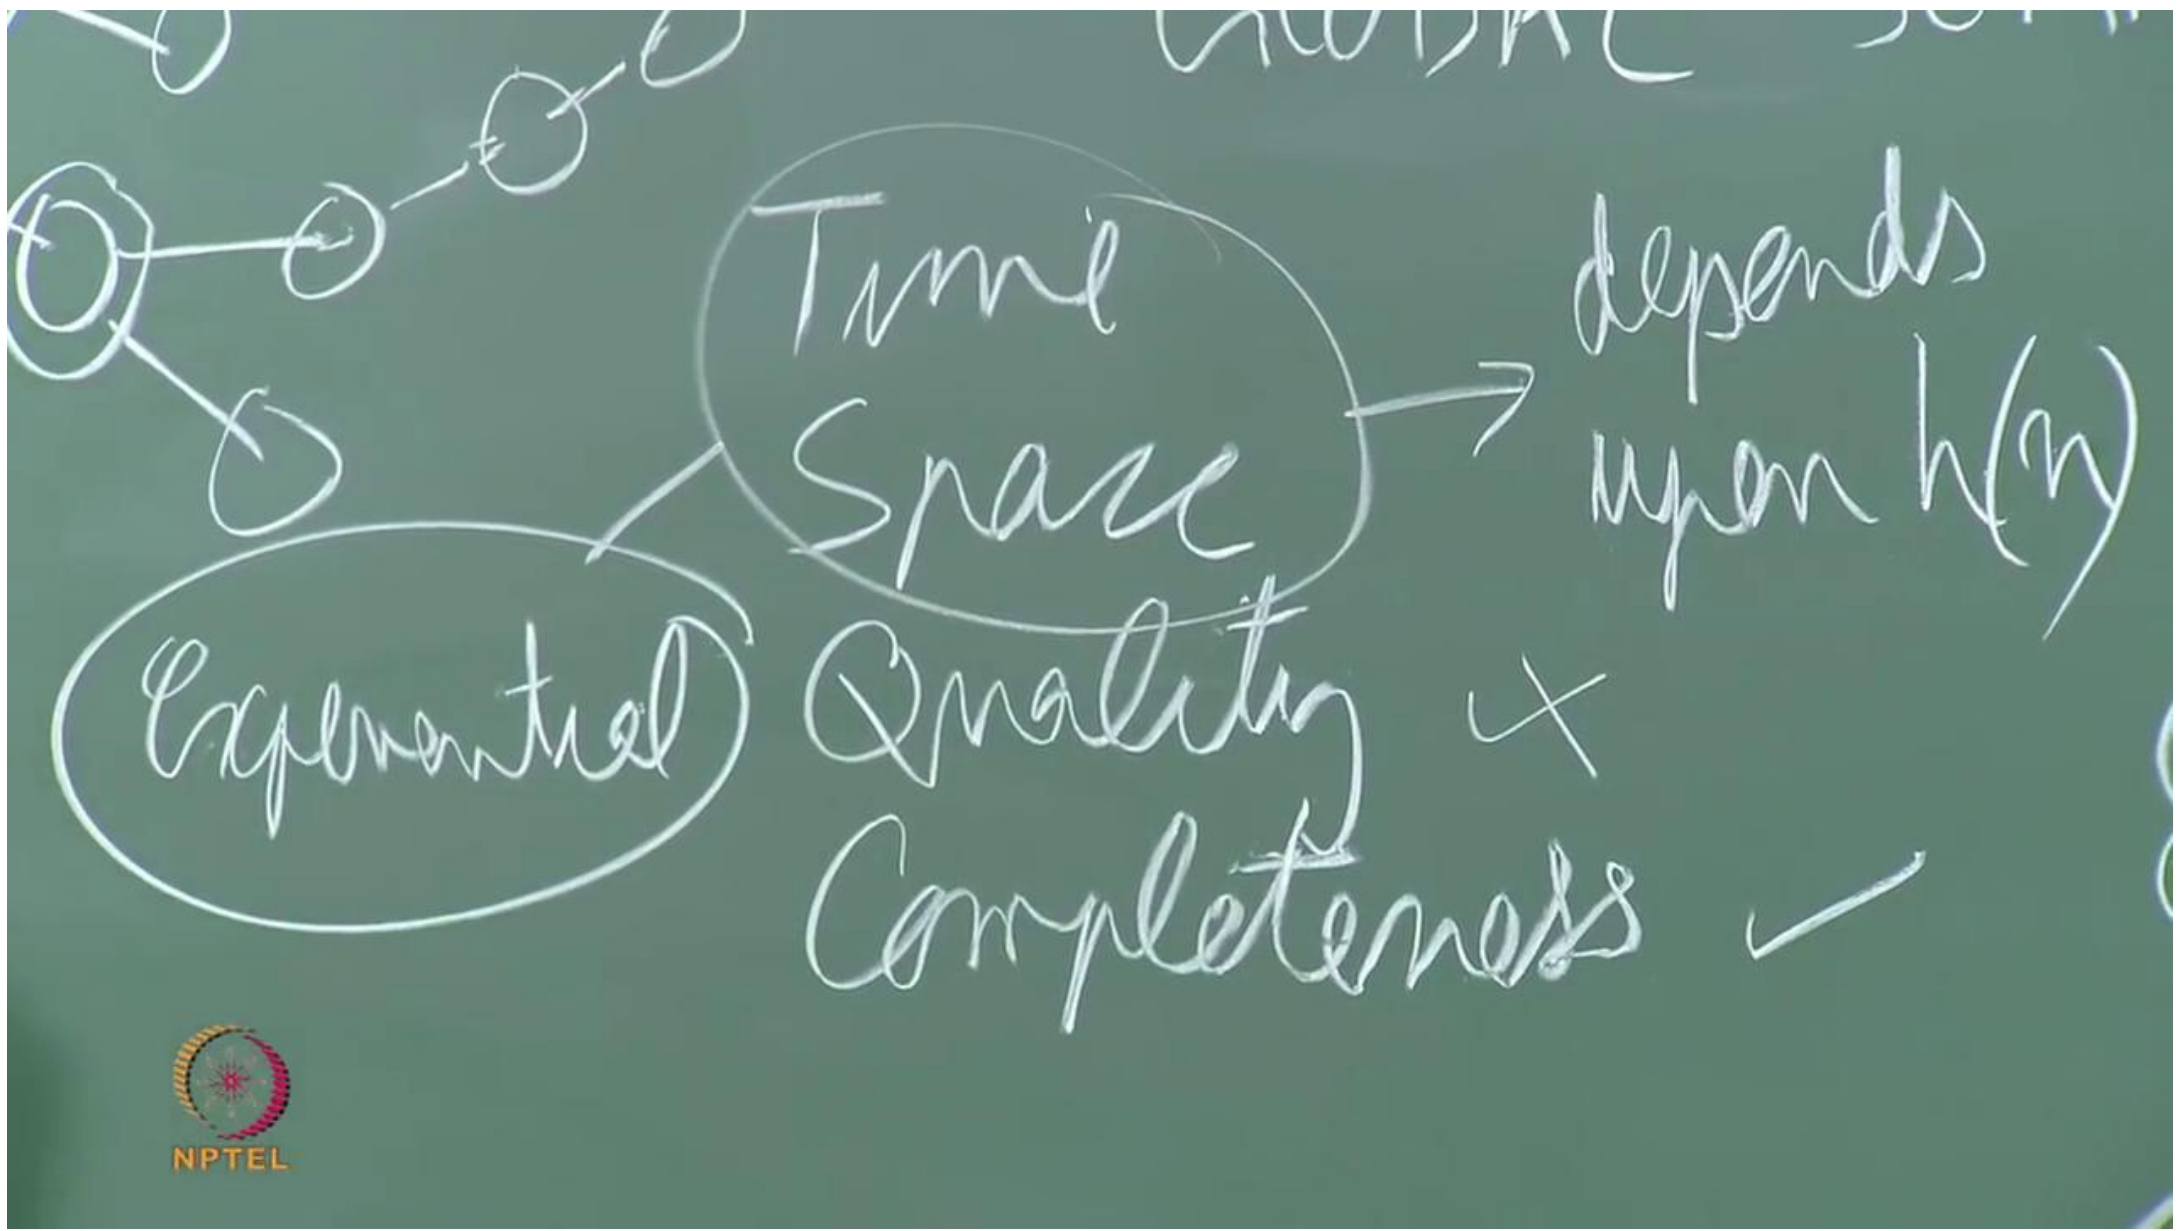 GLOBAL
Time
Space
depends
upon h(n)
Exponential
Quality ×
Completeness ✓
NPTEL